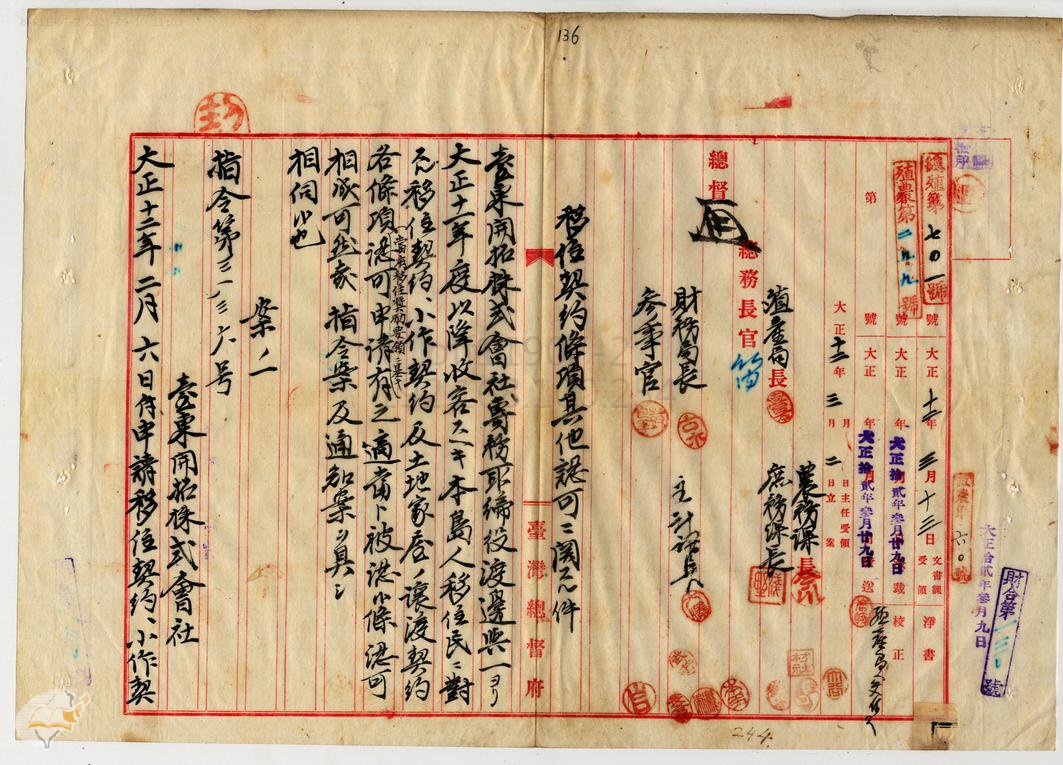 136
總殖第七〇一號
殖農第二九九號
第 號
大正十二年三月十三日 文書課受領 淨書
大正 年 月 日 裁 校正
大正拾貳年參月廿九日
大正 年 月 日 送
大正拾貳年參月廿九日
大正十二年三月二日 主任受領 立案
財合第 號
大正拾貳年參月九日
總督
總務長官
殖産局長
農務課長
庶務課長
財務局長
主計課長
參事官
移住契約條項其他認可ニ関スル件
臺東開拓株式會社專務取締役渡邊與一ヨリ
大正十一年度以降收容スヘキ本島人移住民ニ對
スル移住契約、小作契約及土地家屋ノ讓渡契約
各條項認可申請有之適當ト被認候條認可
(當府移住奬勵要領ニ基キ)
相成可然哉指令案及通知案ヲ具シ
相伺候也
案ノ一
指令第三一三六号
臺東開拓株式會社
大正十二年二月六日付申請移住契約、小作契
臺灣總督府
244
bfP11967-2 2021-09-10 11:03